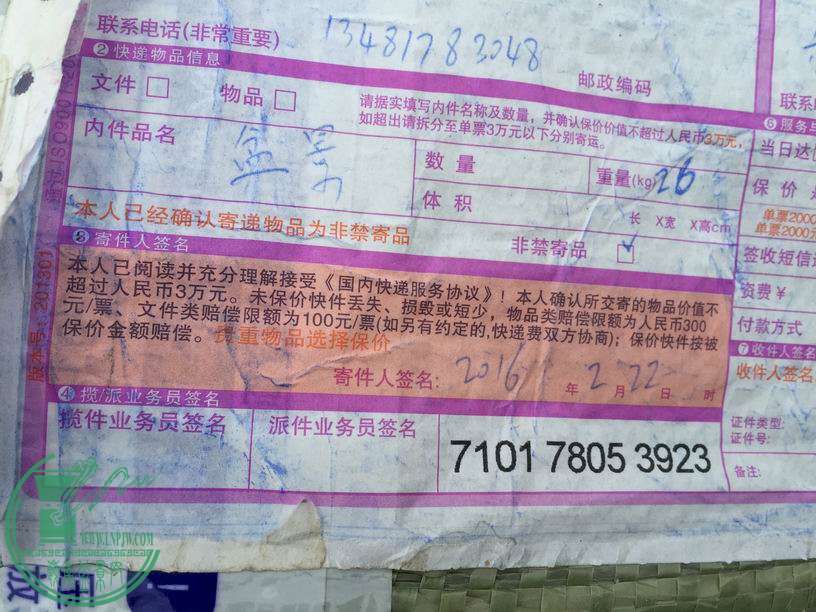 联系电话(非常重要) 13481783048
邮政编码
② 快递物品信息
文件 物品
请据实填写内件名称及数量，并确认保价价值不超过人民币3万元，
如超出请拆分至单票3万元以下分别寄运。
内件品名 盆景
数量
重量(kg) 26
体积
长 X宽 X高cm
本人已经确认寄递物品为非禁寄品
非禁寄品
寄件人签名
本人已阅读并充分理解接受《国内快递服务协议》！本人确认所交寄的物品价值不
超过人民币3万元。未保价快件丢失、损毁或短少，物品类赔偿限额为人民币300
元/票、文件类赔偿限额为100元/票(如另有约定的,快递费双方协商)；保价快件按被
保价金额赔偿。贵重物品选择保价
寄件人签名: 2016 年 2 月 22 日 时
④ 揽/派业务员签名
揽件业务员签名
派件业务员签名
7101 7805 3923
联系
⑥ 服务与
当日达
保价
单票2000
单票2000元
签收短信
资费￥
付款方式
⑦ 收件人签名
收件人签名
证件类型:
证件号:
备注:
版本号: 201301
ISO9001